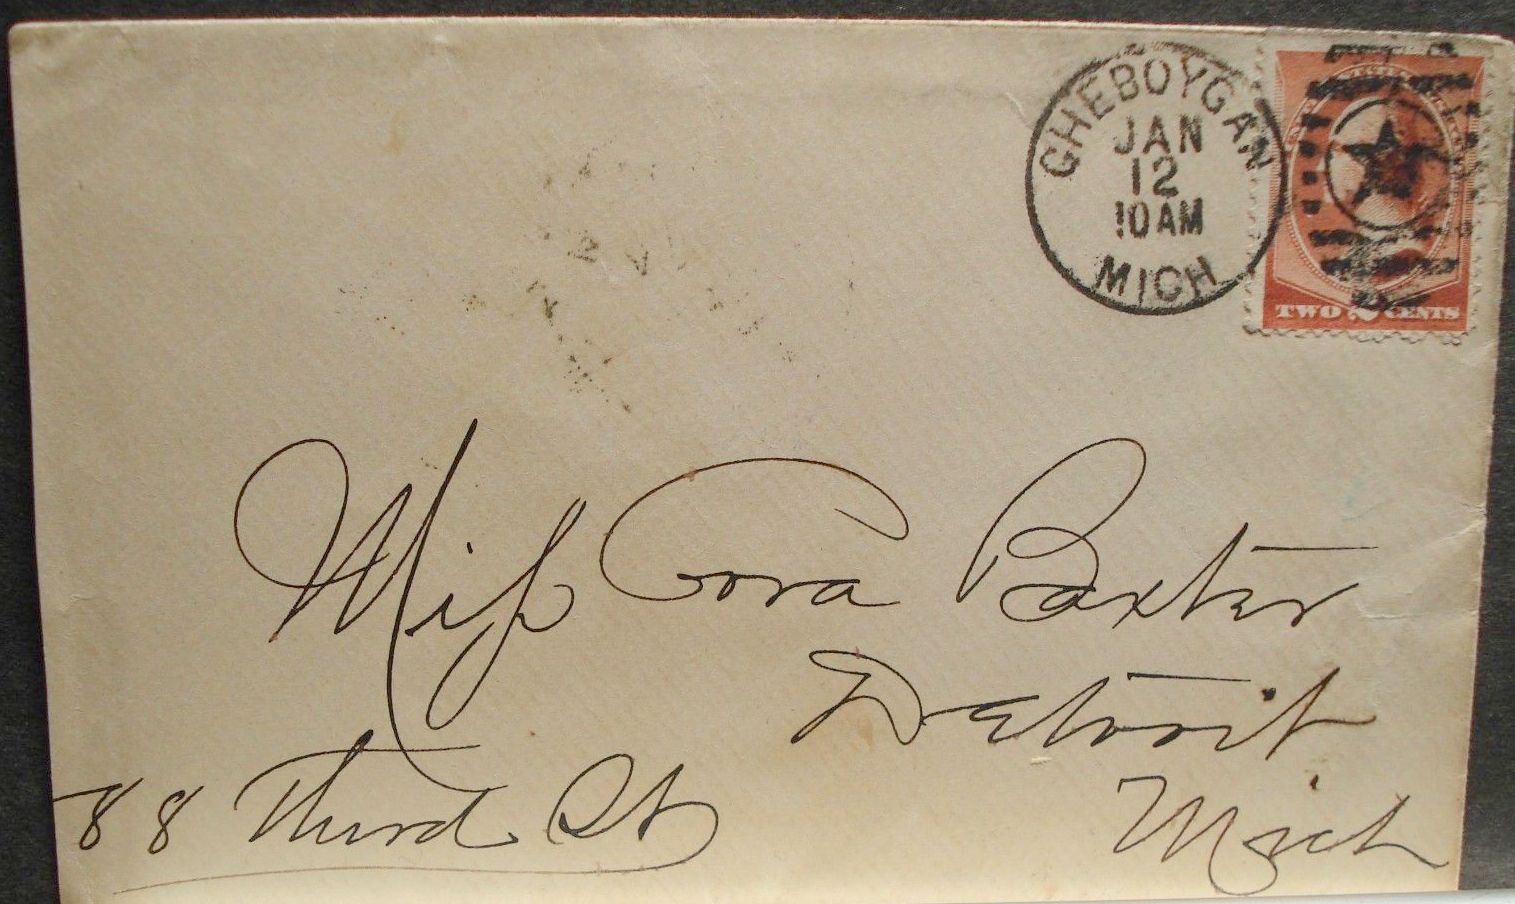 CHEBOYGAN
JAN
12
10 AM
MICH
TWO 2 CENTS
Miss Cora Baxter
Detroit
Mich
88 Third St